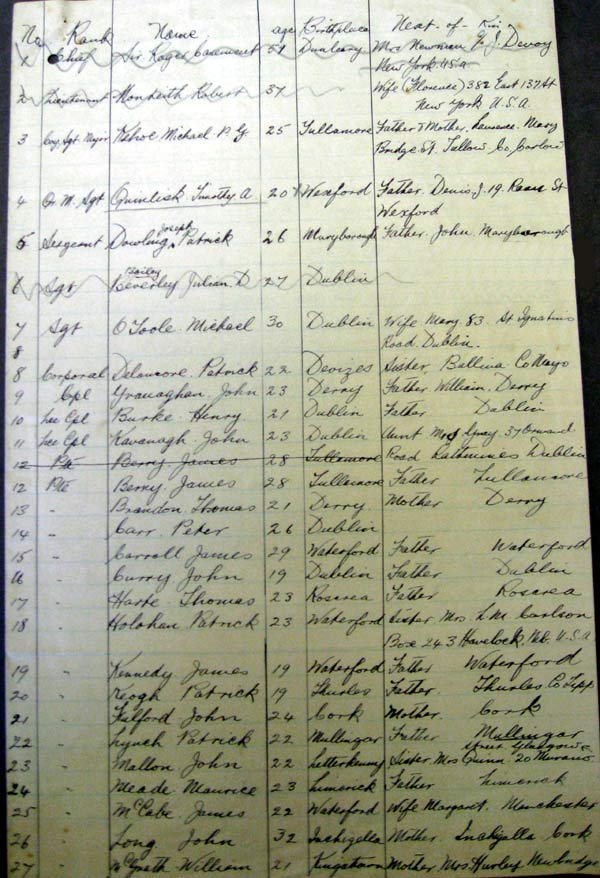 No Rank Name age Birthplace Next of Kin
1 Chief Sir Roger Casement 51 Dunleary Mrs Newman & J. Devoy
New York. U.S.A.
2 Lieutenant Monteith Robert 37 Wife (Florence) 382 East 137 St
New York U.S.A.
3 Coy. Sgt Major Kehoe Michael P. 25 Tullamore Father & Mother, Laurence, Mary
Bridge St. Tullow. Co. Carlow
4 Qr M. Sgt Quinlisk. Timothy. A. 20 Wexford Father. Denis. J. 19. St
Wexford
Joseph
5 Sergeant Dowling, Patrick 26 Maryborough Father. John. Maryborough
Bailey
6 Sgt Beverley Julian. D 27 Dublin
7 Sgt O'Toole. Michael 30 Dublin Wife, Mary. 83. St Ignatius
8 Road. Dublin.
8 Corporal Delamore. Patrick 22 Devizes Sister, Ballina Co Mayo
9 Cpl Granaghan. John 23 Derry Father. William. Derry
10 Lce Cpl Burke. Henry. 21 Dublin Father Dublin
11 Lce Cpl Kavanagh. John 23 Dublin Aunt Mrs Gray. 37 Ormond
12 Pte Berry. James 28 Tullamore Road Rathmines Dublin
12 Pte Berry. James 28 Tullamore Father Tullamore
13 - Brandon. Thomas 21 Derry. Mother Derry
14 - Carr. Peter 26 Dublin
15 - Carroll James 29 Waterford Father Waterford
16 - Curry John 19 Dublin Father Dublin
17 - Harte. Thomas 23 Roscrea Father Roscrea
18 - Holohan Patrick 23 Waterford Sister. Mrs. L. M. Carlson
Box 243 Havelock. Neb. U.S.A
19 - Kennedy James 19 Waterford Father Waterford
20 - Keogh Patrick 19 Thurles Father. Thurles Co Tipp
21 - Fulford John 24 Cork Mother. Cork
22 - Lynch Patrick 22 Mullingar Father Mullingar
Street Glasgow
23 - Mallon John 22 Letterkenny Sister Mrs Quinn. 20 Murano
24 - Meade. Maurice 23 Limerick Father Limerick
25 - McCabe. James 22 Waterford Wife Margaret. Manchester
26 - Long. John 32 Inchigella Mother. Inchigalla Cork
27 - McGrath William 21 Kingstown Mother Mrs Hurley Newbridge